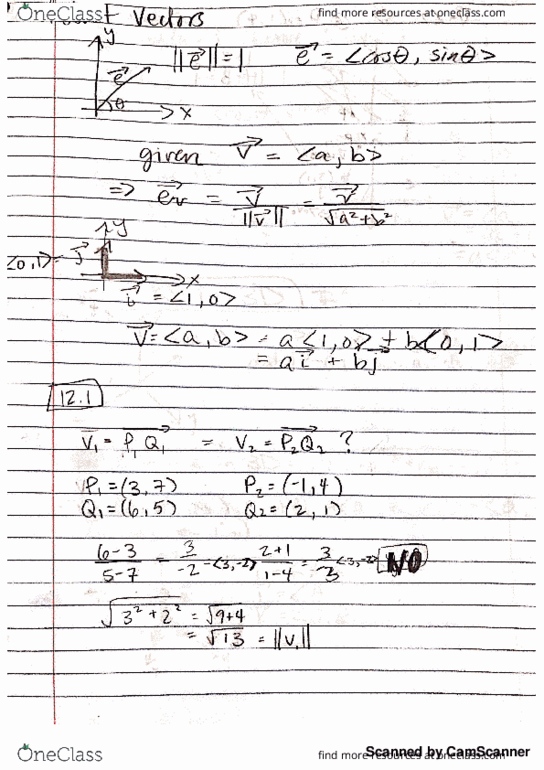 OneClass find more resources at oneclass.com
Vectors
y
||e|| = 1 e = <cosθ, sinθ>
e
θ
x
given V = <a, b>
=> ev = v/||v|| = v/√a²+b²
y
<0,1> = j
x
i = <1,0>
V = <a, b> = a<1,0> + b<0,1>
= ai + bj
12.1
V₁ = P₁Q₁ = V₂ = P₂Q₂ ?
P₁ = (3,7) P₂ = (-1,4)
Q₁ = (6,5) Q₂ = (2,1)
6-3/5-7 = 3/-2 = <3,-2> 2+1/1-4 = 3/-3 NO
√3²+2² = √9+4
= √13 = ||V₁||
OneClass find more resources at oneclass.com
Scanned by CamScanner